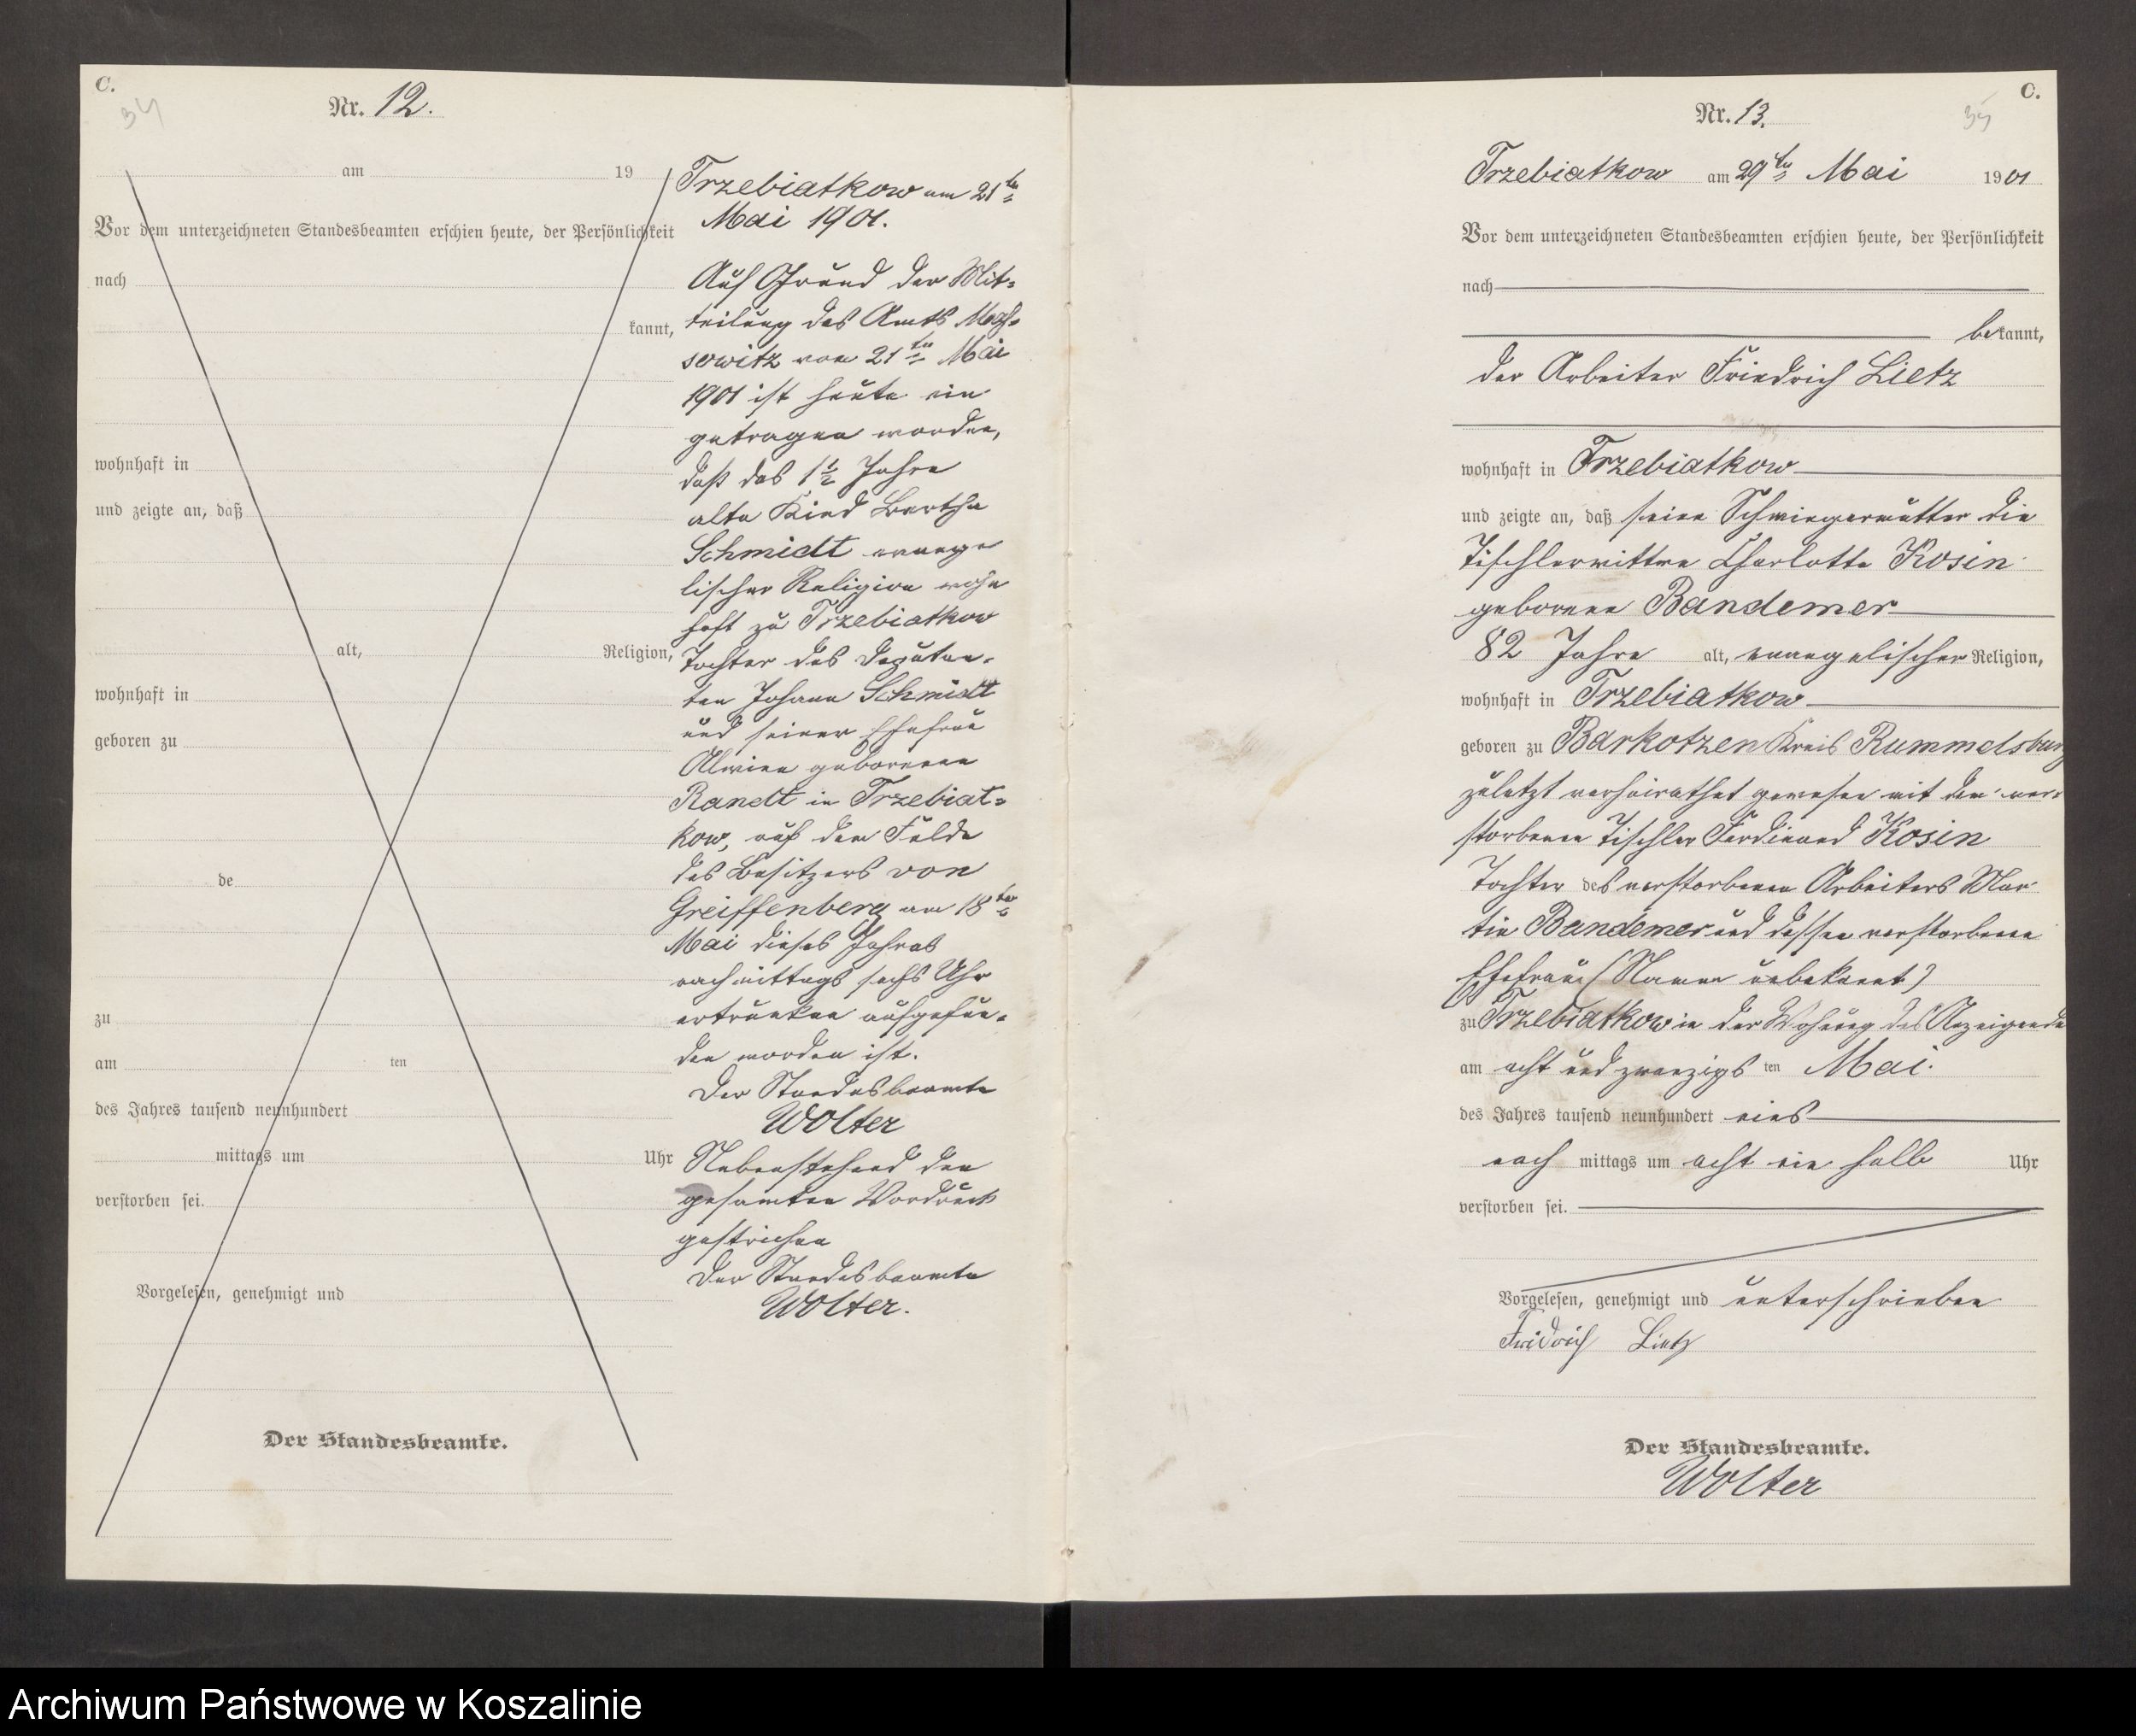 C.
34
Nr. 12.
am 19
Vor dem unterzeichneten Standesbeamten erschien heute, der Persönlichkeit
nach
kannt,
wohnhaft in
und zeigte an, daß
alt, Religion,
wohnhaft in
geboren zu
de
zu
am ten
des Jahres tausend neunhundert
mittags um Uhr
verstorben sei.
Vorgelesen, genehmigt und
Der Standesbeamte.
Trzebiatkow am 21ten
Mai 1901.
Auf Grund der Mit-
teilung des Amts
sowitz vom 21ten Mai
1901 ist heute ein
getragen worden,
daß das 1½ Jahre
alte Kind Bertha
Schmidt evange
lischer Religion wohn
haft zu Trzebiatkow
Tochter des Deputan-
ten Johann Schmidt
und seiner Ehefrau
Alwine geborenen
Randt in Trzebiat-
kow, auf dem Felde
des Besitzers von
Greiffenberg am 18ten
Mai dieses Jahres
nachmittags sechs Uhr
ertrunken aufgefun-
den worden ist.
Der Standesbeamte
Wolter
Nebenstehend den
gesamten Vordruck
gestrichen
Der Standesbeamte
Wolter.
C.
35
Nr. 13.
Trzebiatkow am 29ten Mai 1901
Vor dem unterzeichneten Standesbeamten erschien heute, der Persönlichkeit
nach
bekannt,
der Arbeiter Friedrich Lietz
wohnhaft in Trzebiatkow
und zeigte an, daß seine Schwiegermutter die
Tischlerwittwe Charlotte Kosin
geborene Bandemer
82 Jahre alt, evangelischer Religion,
wohnhaft in Trzebiatkow
geboren zu Barkotzen Kreis Rummelsburg
zuletzt verheirathet gewesen mit dem ver-
storbenen Tischler Ferdinand Kosin
Tochter des verstorbenen Arbeiters Mar
tin Bandemer und dessen verstorbenen
Ehefrau (Name unbekannt)
zu Trzebiatkow in der Wohnung des Anzeigende
am acht und zwanzigsten Mai.
des Jahres tausend neunhundert eins
nach mittags um acht ein halb Uhr
verstorben sei.
Vorgelesen, genehmigt und unterschrieben
Fridrich Lietz
Der Standesbeamte.
Wolter
Archiwum Państwowe w Koszalinie